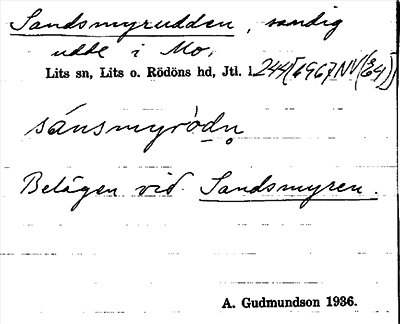 Sandsmyrudden, sandig
udde i Mo,
Lits sn, Lits o. Rödöns hd, Jtl. l. 244 [1967 NV (E4)]
sánsmyròdn̥
Belägen vid Sandsmyren.
A. Gudmundson 1936.